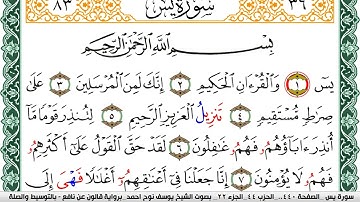 ٣٦ سورة يس ٨٣
بِسْمِ اللَّهِ الرَّحْمَٰنِ الرَّحِيمِ
يسٓ ١ وَالْقُرْءَانِ الْحَكِيمِ ٢ إِنَّكَ لَمِنَ الْمُرْسَلِينَ ٣ عَلَىٰ
صِرَٰطٍ مُّسْتَقِيمٍ ٤ تَنزِيلُ الْعَزِيزِ الرَّحِيمِ ٥ لِتُنذِرَ قَوْمًا مَّا
أُنذِرَ ءَابَآؤُهُمْ فَهُمْ غَٰفِلُونَ ٦ لَقَدْ حَقَّ الْقَوْلُ عَلَىٰ أَكْثَرِهِمْ
فَهُمْ لَا يُؤْمِنُونَ ٧ إِنَّا جَعَلْنَا فِي أَعْنَٰقِهِمْ أَغْلَٰلًا فَهْىَ إِلَى
سورة يس الصفحة ٤٤٠ الحزب ٤٤ الجزء ٢٢ بصوت الشيخ يوسف نوح احمد برواية قالون عن نافع - بالتوسيط والصلة